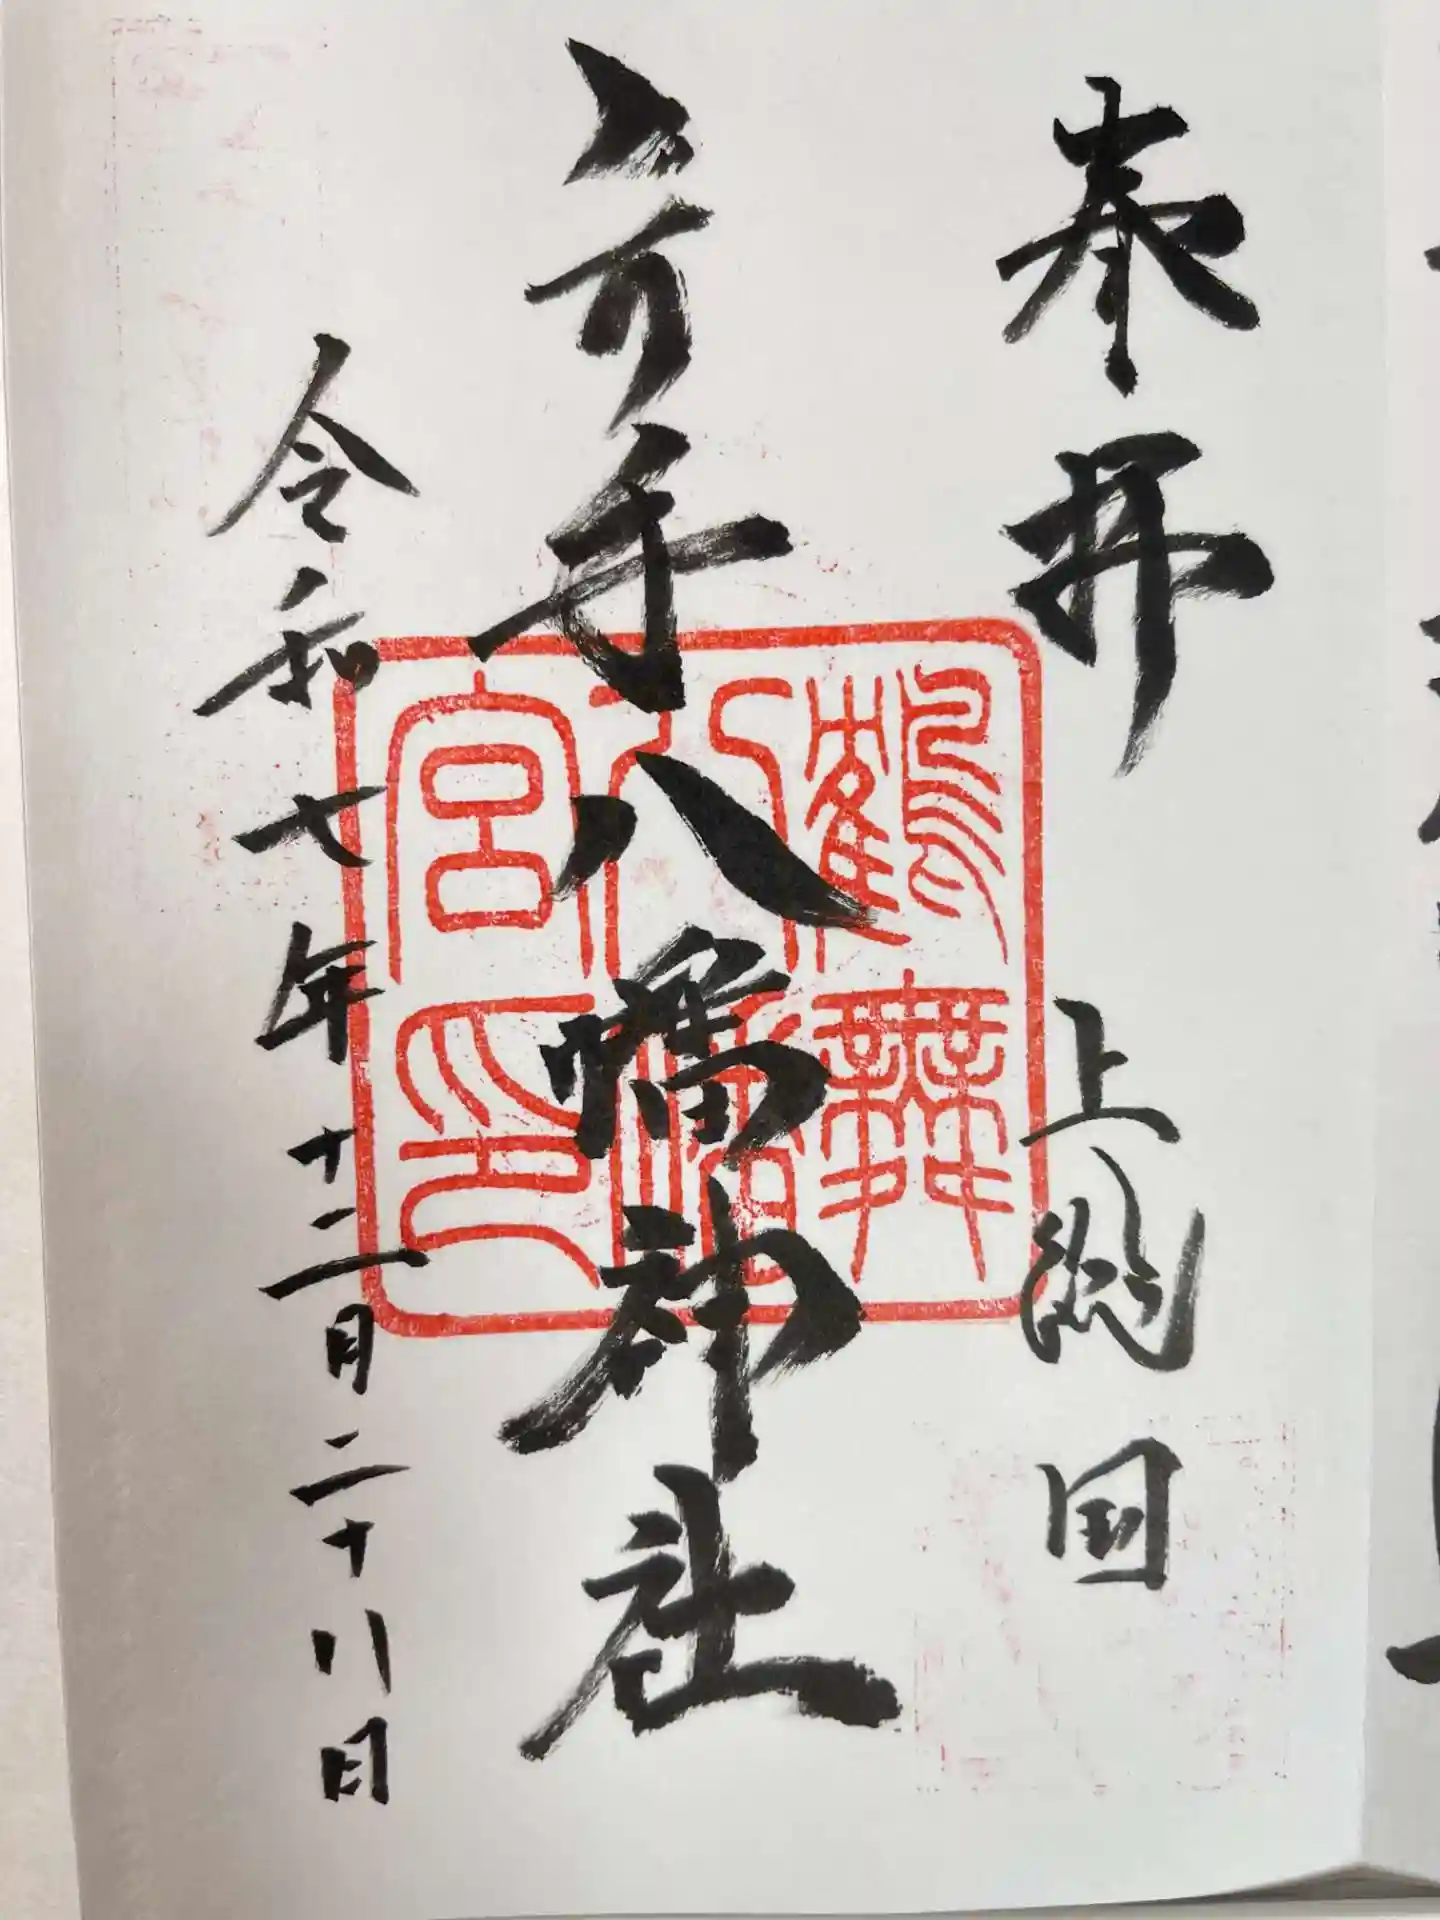 奉拝 上総国
八幡神社
令和七年十二月二十八日
鶴舞
八幡
宮印